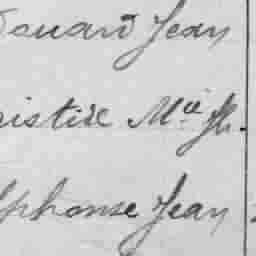 douard Jean
ristine Mie Jh.
lphonse Jean